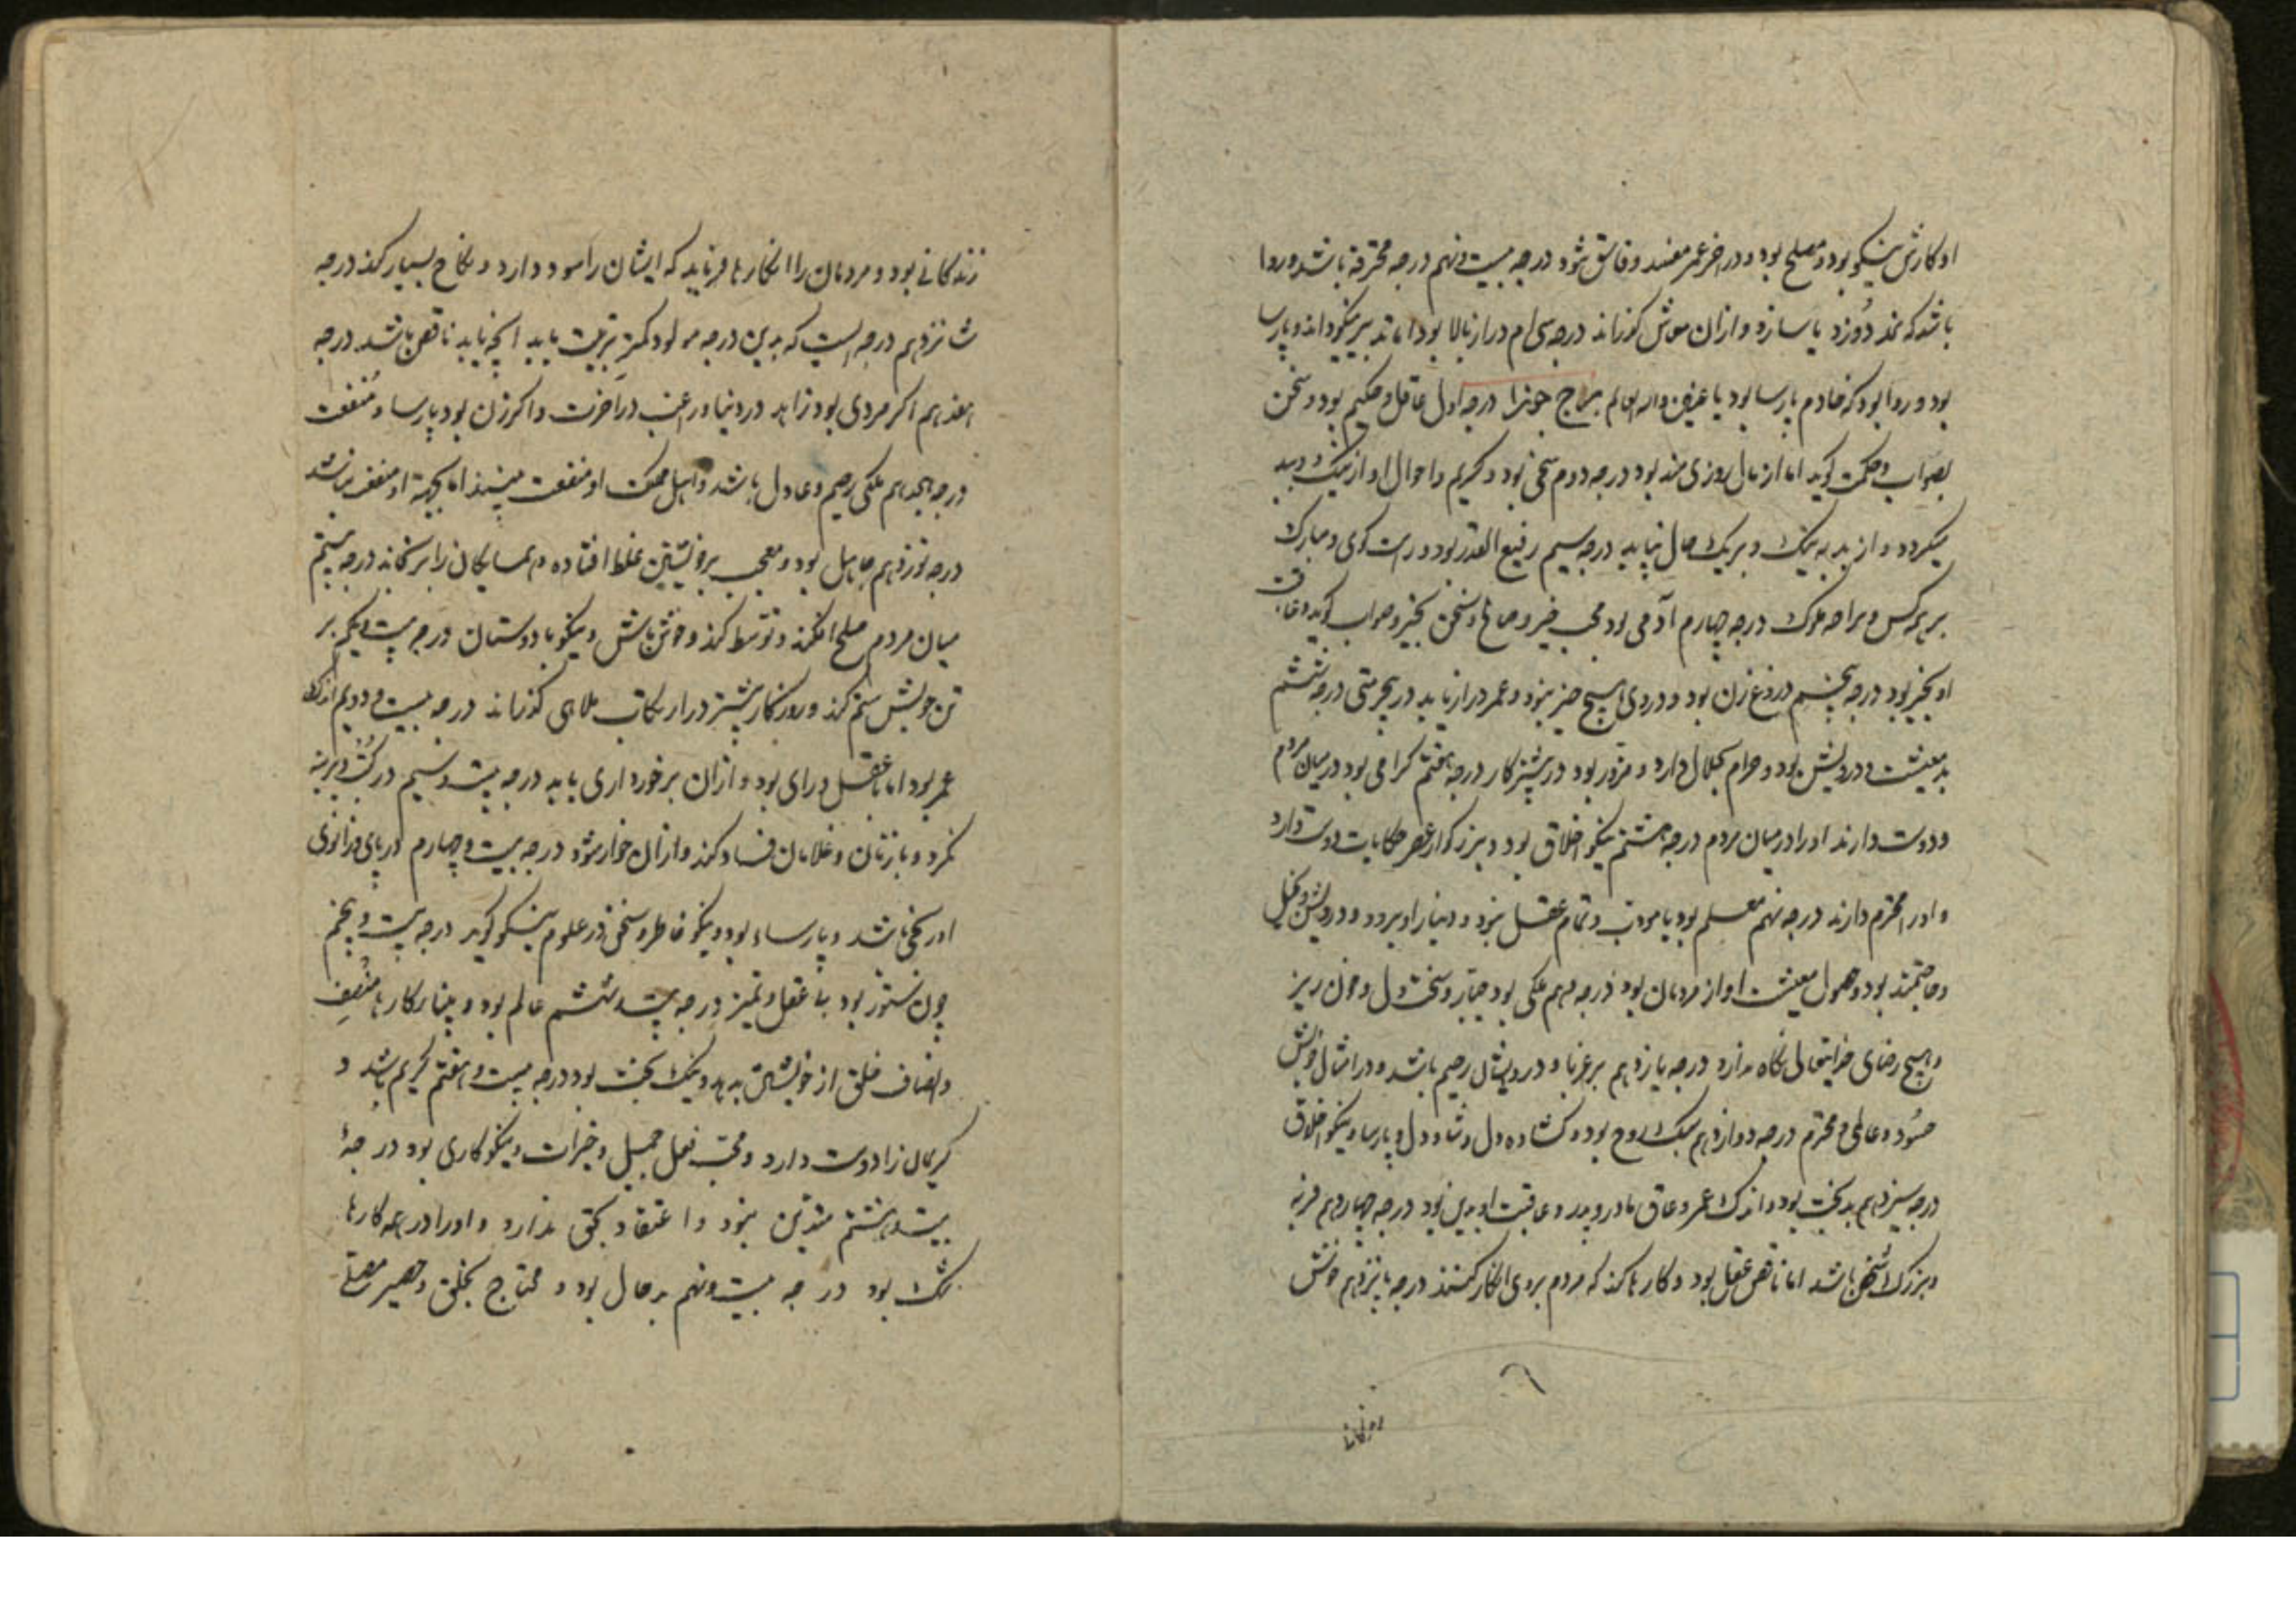 او کارش نیکو بود و مصلح بود و در اخر عمر مفسد و فاسق شود درجه بیست و نهم درجه محترقه باشد و روا
باشد که نمد دوزد یا سازد و ازان معاش کذراند درجه سی ام دراز بالا بود اما تدبیر نیکو داند و پارسا
بود و روا بود که خادم پارسا بود یا عفیف برج جوزا درجه اول عاقل و حکیم بود و سخن
بصواب و حکمت کوید اما از مال روزی مند بود درجه دوم سخی بود و کریم و احوال او از نیک و بد
میکردد و از بد به نیک و بریک حال نپاید درجه سیم رفیع القدر بود و راست کوی و مبارک
بر همه کس و برا ملوک درجه چهارم آدمی بود محب خیر و صالح و سخن بخیر و صواب کوید و عاقبت
او بخیر بود درجه پنجم دروغ زن بود و در وی هیچ خیر نبود و عمر دراز یابد در بیحرمتی درجه ششم
بد معیشت و درویش بود و حرام بحلال دارد و مزور بود در بیشتر کار درجه هفتم کرامی بود در میان مردم
و دوست دارند او را در میان مردم درجه هشتم نیکو اخلاق بود و بزرکوار عصر حکایات دوست دارد
و او را محترم دارند درجه نهم معلم بود یا مودب و تمام عقل نبود و دنیا را و برد و درویش و بخیل
و حاجتمند بود و حصول معیشت او از مردمان بود درجه دهم ملکی بود جبار و سخت دل و خون ریز
و هیچ رضای خدایتعالی نکاه ندارد درجه یازدهم بر غربا و درویشان رحیم باشد و در امثال خویش
حسود و عالم و محترم درجه دوازدهم سبک روح بود و کشاده دل و شاد دل و پارسا و نیکو اخلاق
درجه سیزدهم بدبخت بود و اندک عمر و عاق مادر و پدر و عاقبت او بدین بود درجه چهاردهم فربه
و بزرک شخص باشد اما ناقص عقل بود و کارها کند که مردم بر وی انکار کنند درجه پانزدهم خوش
زندکانی بود و مردمان را کارها فرماید که ایشان را سود دارد و نکاح بسیار کند درجه
شانزدهم درجه ایست که بدین درجه مولود کمتر تربیت یابد انچه یابد ناقص باشد درجه
هفدهم اکر مردی بود زاهد در دنیا و راغب در اخرت و اکر زن بود پارسا و
درجه هجدهم ملکی رحیم و عادل باشد و اهل مملکت او منفعت بینند اما بجهة او منفعت نباشد
درجه نوزدهم جاهل بود و معجب بر خویشتن غلط افتاده و همسایکان را برنجاند درجه بیستم
میان مردم صلح افکند و توسط کند و خوش باش و نیکو با دوستان درجه بیست و یکم بر
تن خویش ستم کند و روزکار بیشتر در ارتکاب ملاهی کذراند درجه بیست و دویم اندک
عمر بود اما با عقل و رای بود و ازان برخورداری یابد درجه بیست و سیم
و با زنان و غلامان فساد کند و ازان خوار شود درجه بیست و چهارم در پای و زانوی
او رنجی باشد و پارساء بود و نیکو خاطر و سخن در علوم نیکو کوید درجه بیست و پنجم
چون ستور بود بی عقل و تمیز درجه بیست و ششم عالم بود و بینا بر کارها منصف
و انصاف خلق از خویشتن بدهد و نیک بخت بود درجه بیست و هفتم کریم باشد و
کریمان را دوست دارد و محب فعل جمیل و خیرات و نیکوکاری بود درجهٔ
بیست و هشتم متدین نبود و اعتقاد بحق ندارد و او را در همه کارها
شک بود درجه بیست و نهم بدحال بود و محتاج بخلق و حصیر مصلی